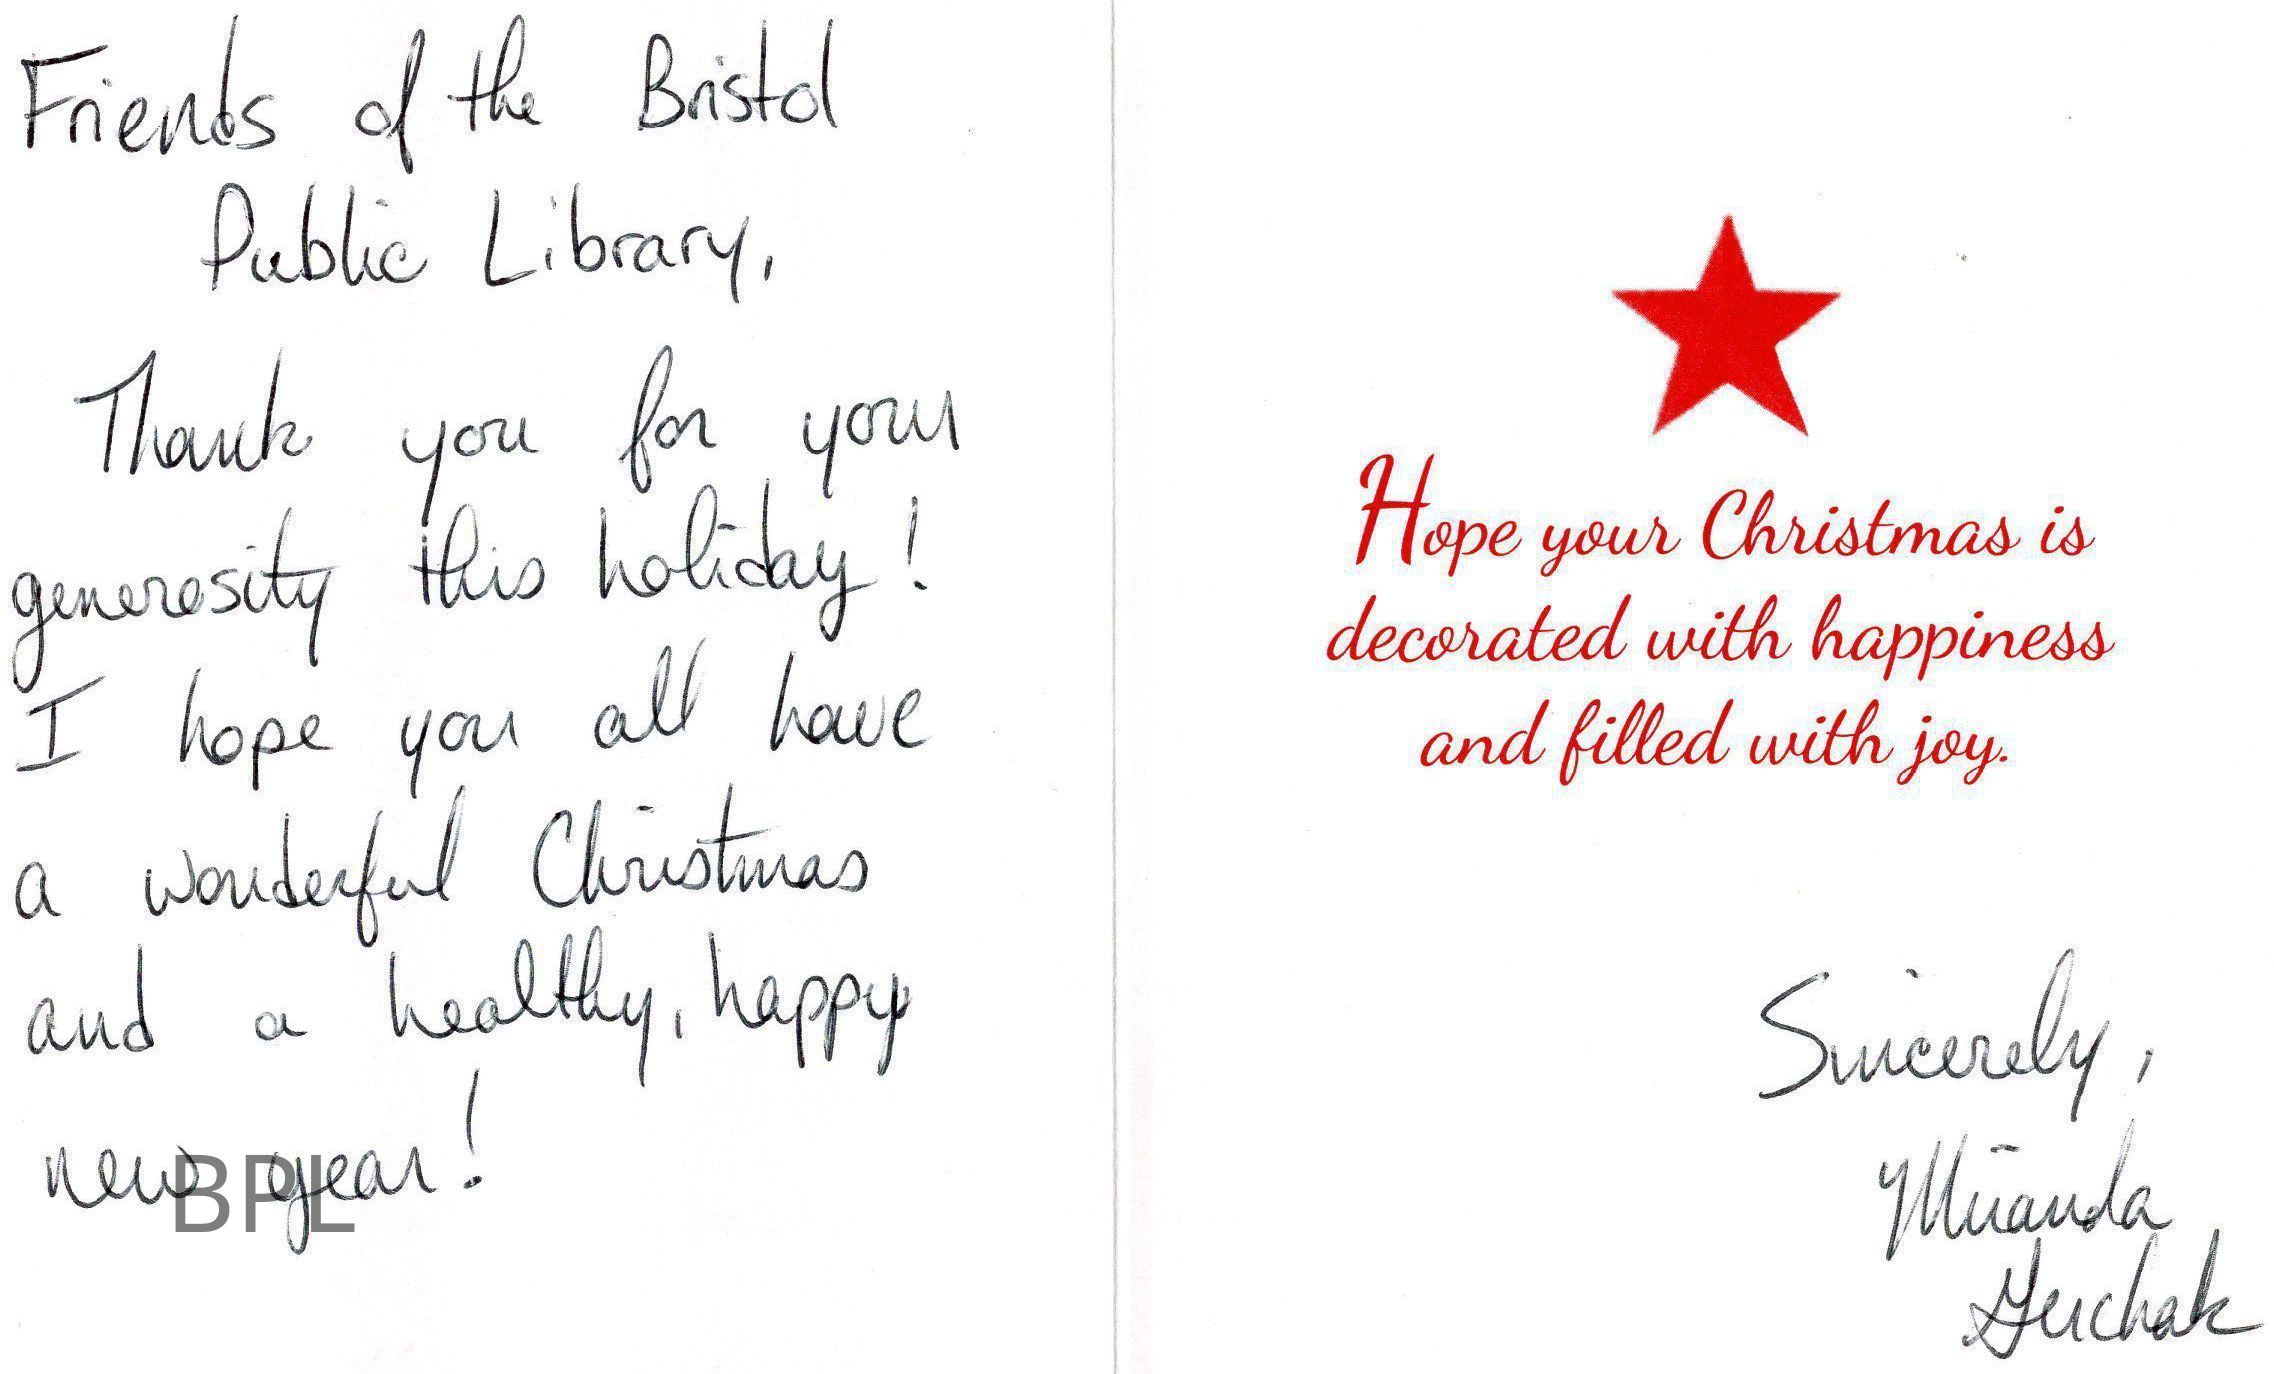 Friends of the Bristol
Public Library,
Thank you for your
generosity this holiday!
I hope you all have
a wonderful Christmas
and a healthy, happy
new year!
BPL
Hope your Christmas is
decorated with happiness
and filled with joy.
Sincerely,
Miranda